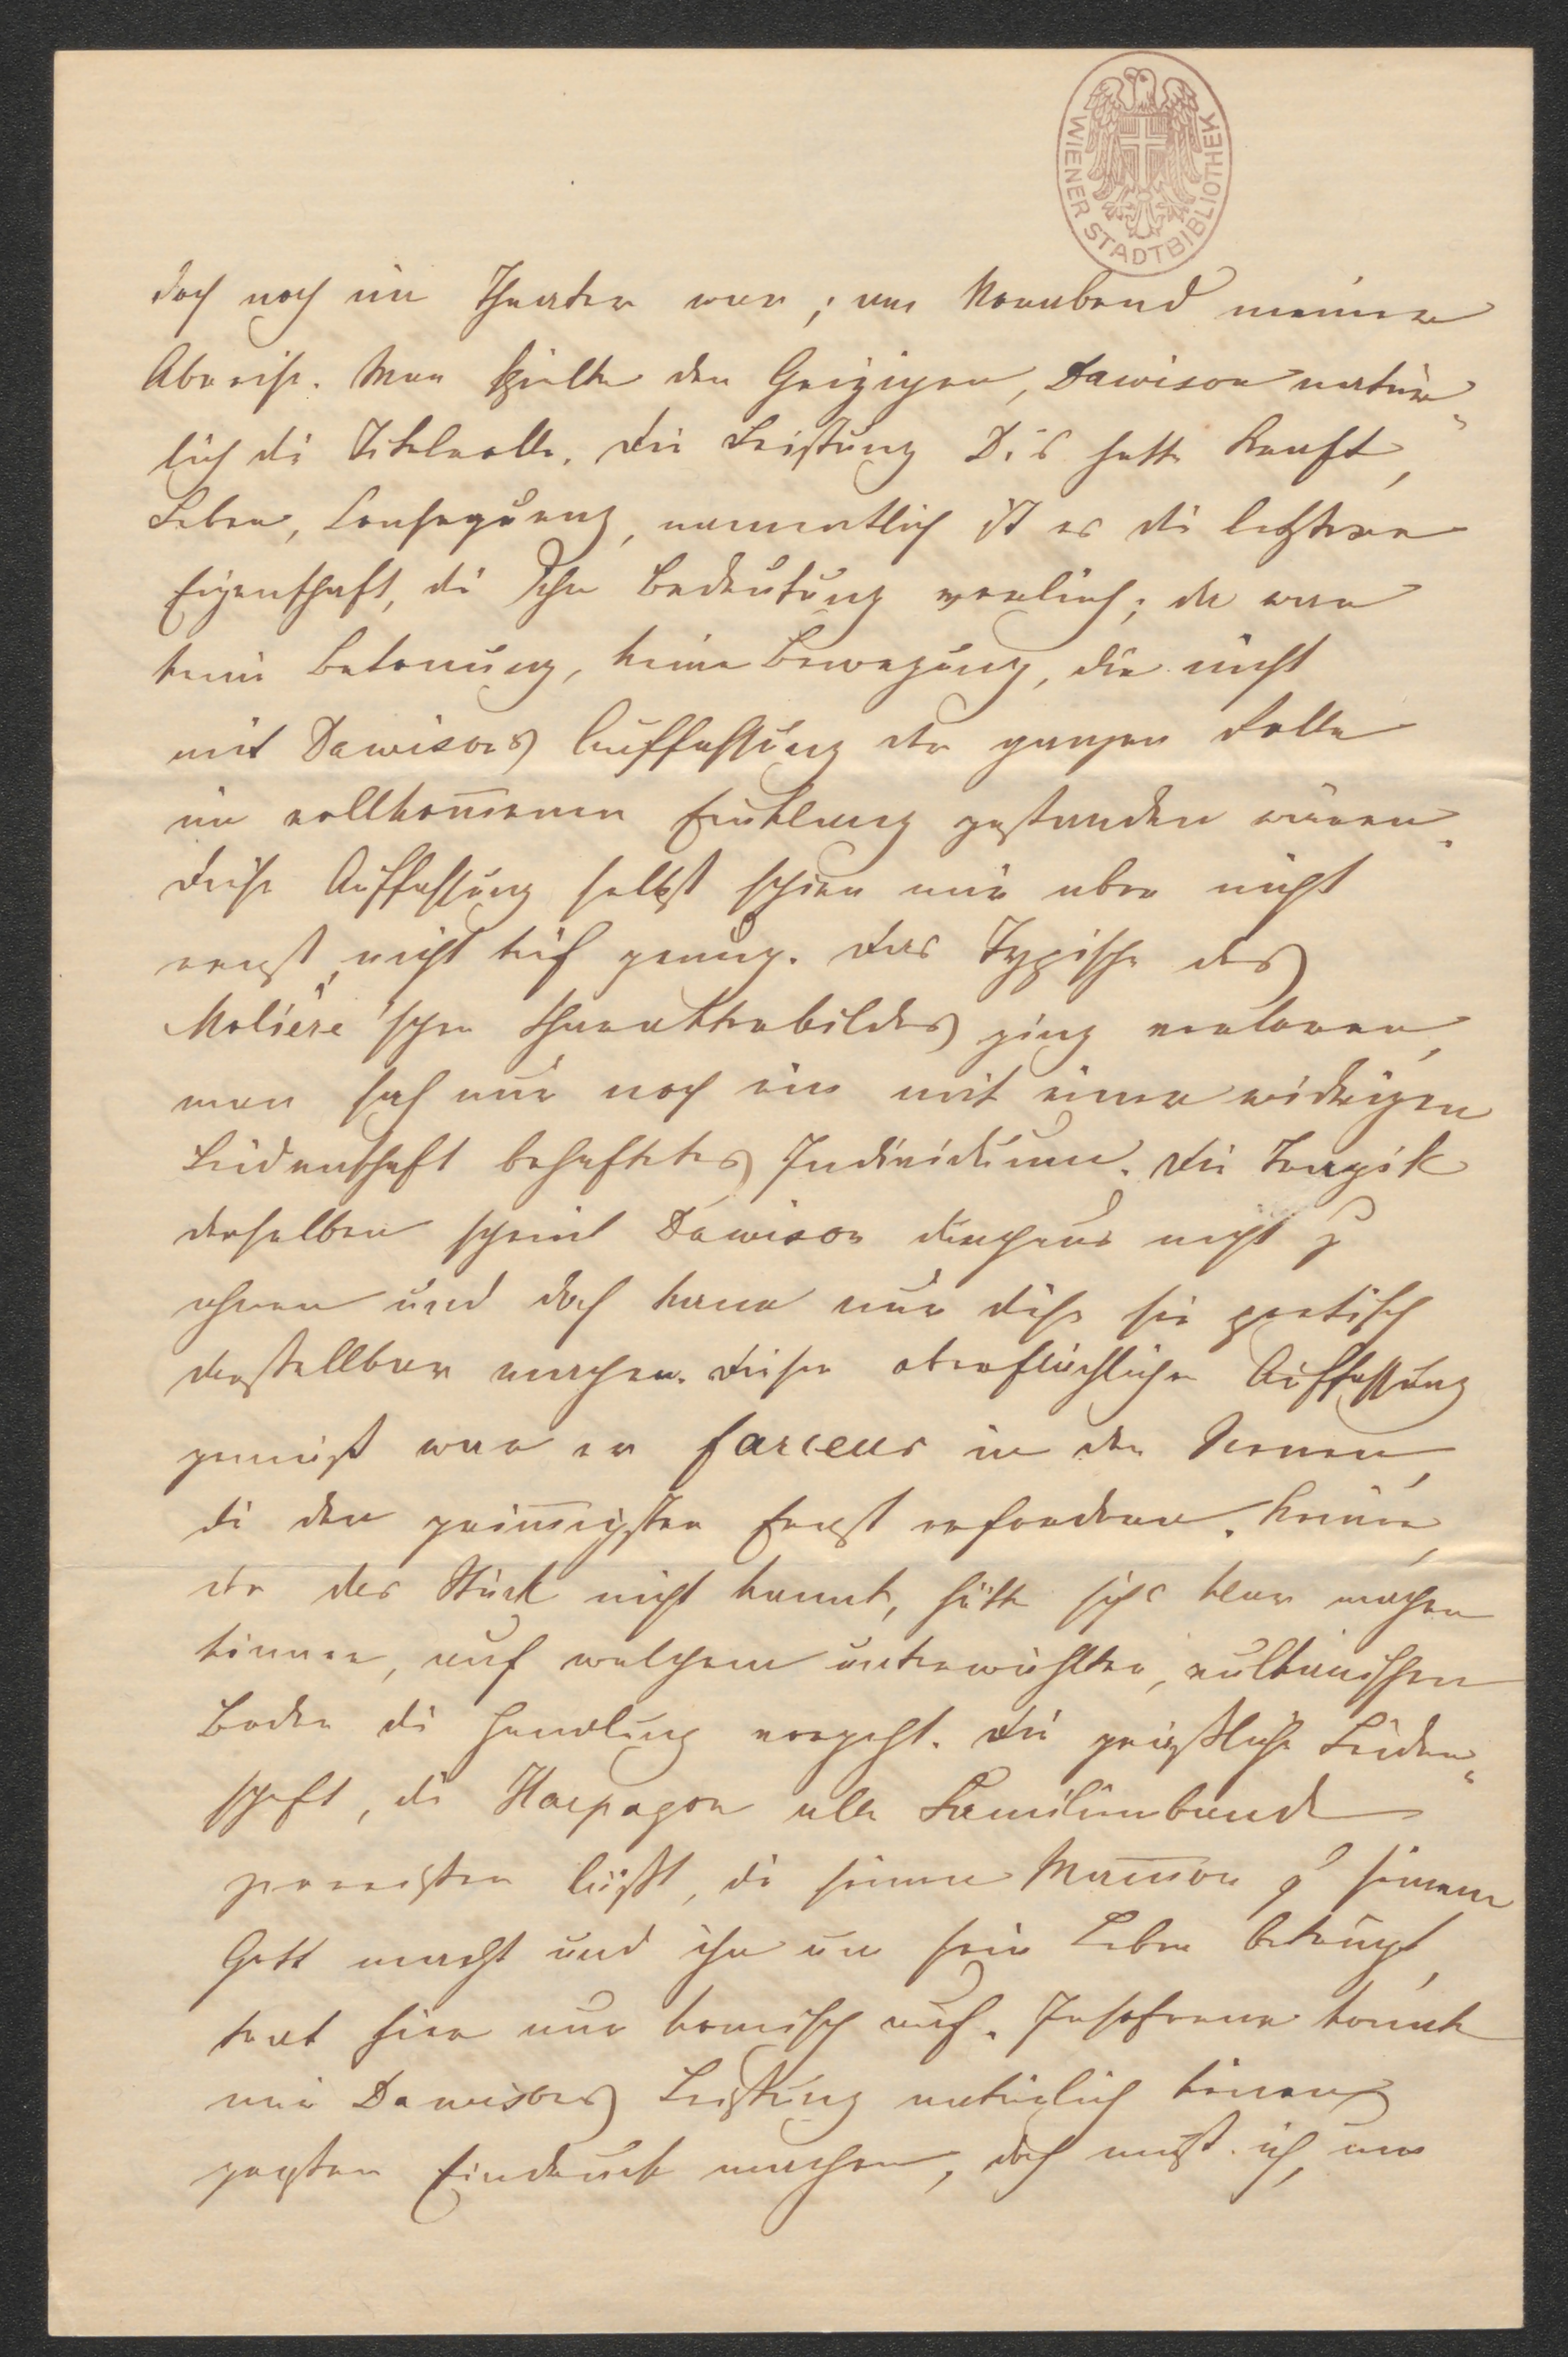 WIENER STADTBIBLIOTHEK
doch noch im Theater war; am Vorabend meiner
Abreise. Man spielte den Geizigen, Dawison natür„
lich die Titelrolle. Die Leistung D.'s hatte Kraft,
Leben, Consequenz, namentlich ist es die letztere
Eigenschaft, die ihr Bedeutung verlieh; da war
keine Betonung, keine Bewegung, die nicht
mit Dawisons Auffassung der ganzen Rolle
im vollkom̅enen Einklang gestanden wären.
Diese Auffassung selbst schien mir aber nicht
ernst, nicht tief genug. Das Typische des
Molière'schen Charakterbildes ging verloren,
man sah nur noch ein mit einer widrigen
Leidenschaft behaftetes Individuum. Die Tragik
derselben scheint Dawison durchaus nicht zu
ahnen und doch kann nur diese sie poetisch
darstellbar machen. Dieser oberflächlichen Auffassung
gemäß war er farceur in den Scenen,
die den grim̅igsten Ernst erfordern. Keiner,
der das Stück nicht kannte, hätte sichs klar machen
können, auf welchem unterwühlten, vulkanischen
Boden die Handlung vorgeht. Die gräßliche Leiden„
schaft, die Harpagon alle Familienbande
zerreißen läßt, die seinen Mam̅on zu seinem
Gott macht und ihn um sein Leben betrügt,
trat hier nur komisch auf. Insofern konnte
mir Dawisons Leistung natürlich keinen
großen Eindruck machen, doch mußt ich, um